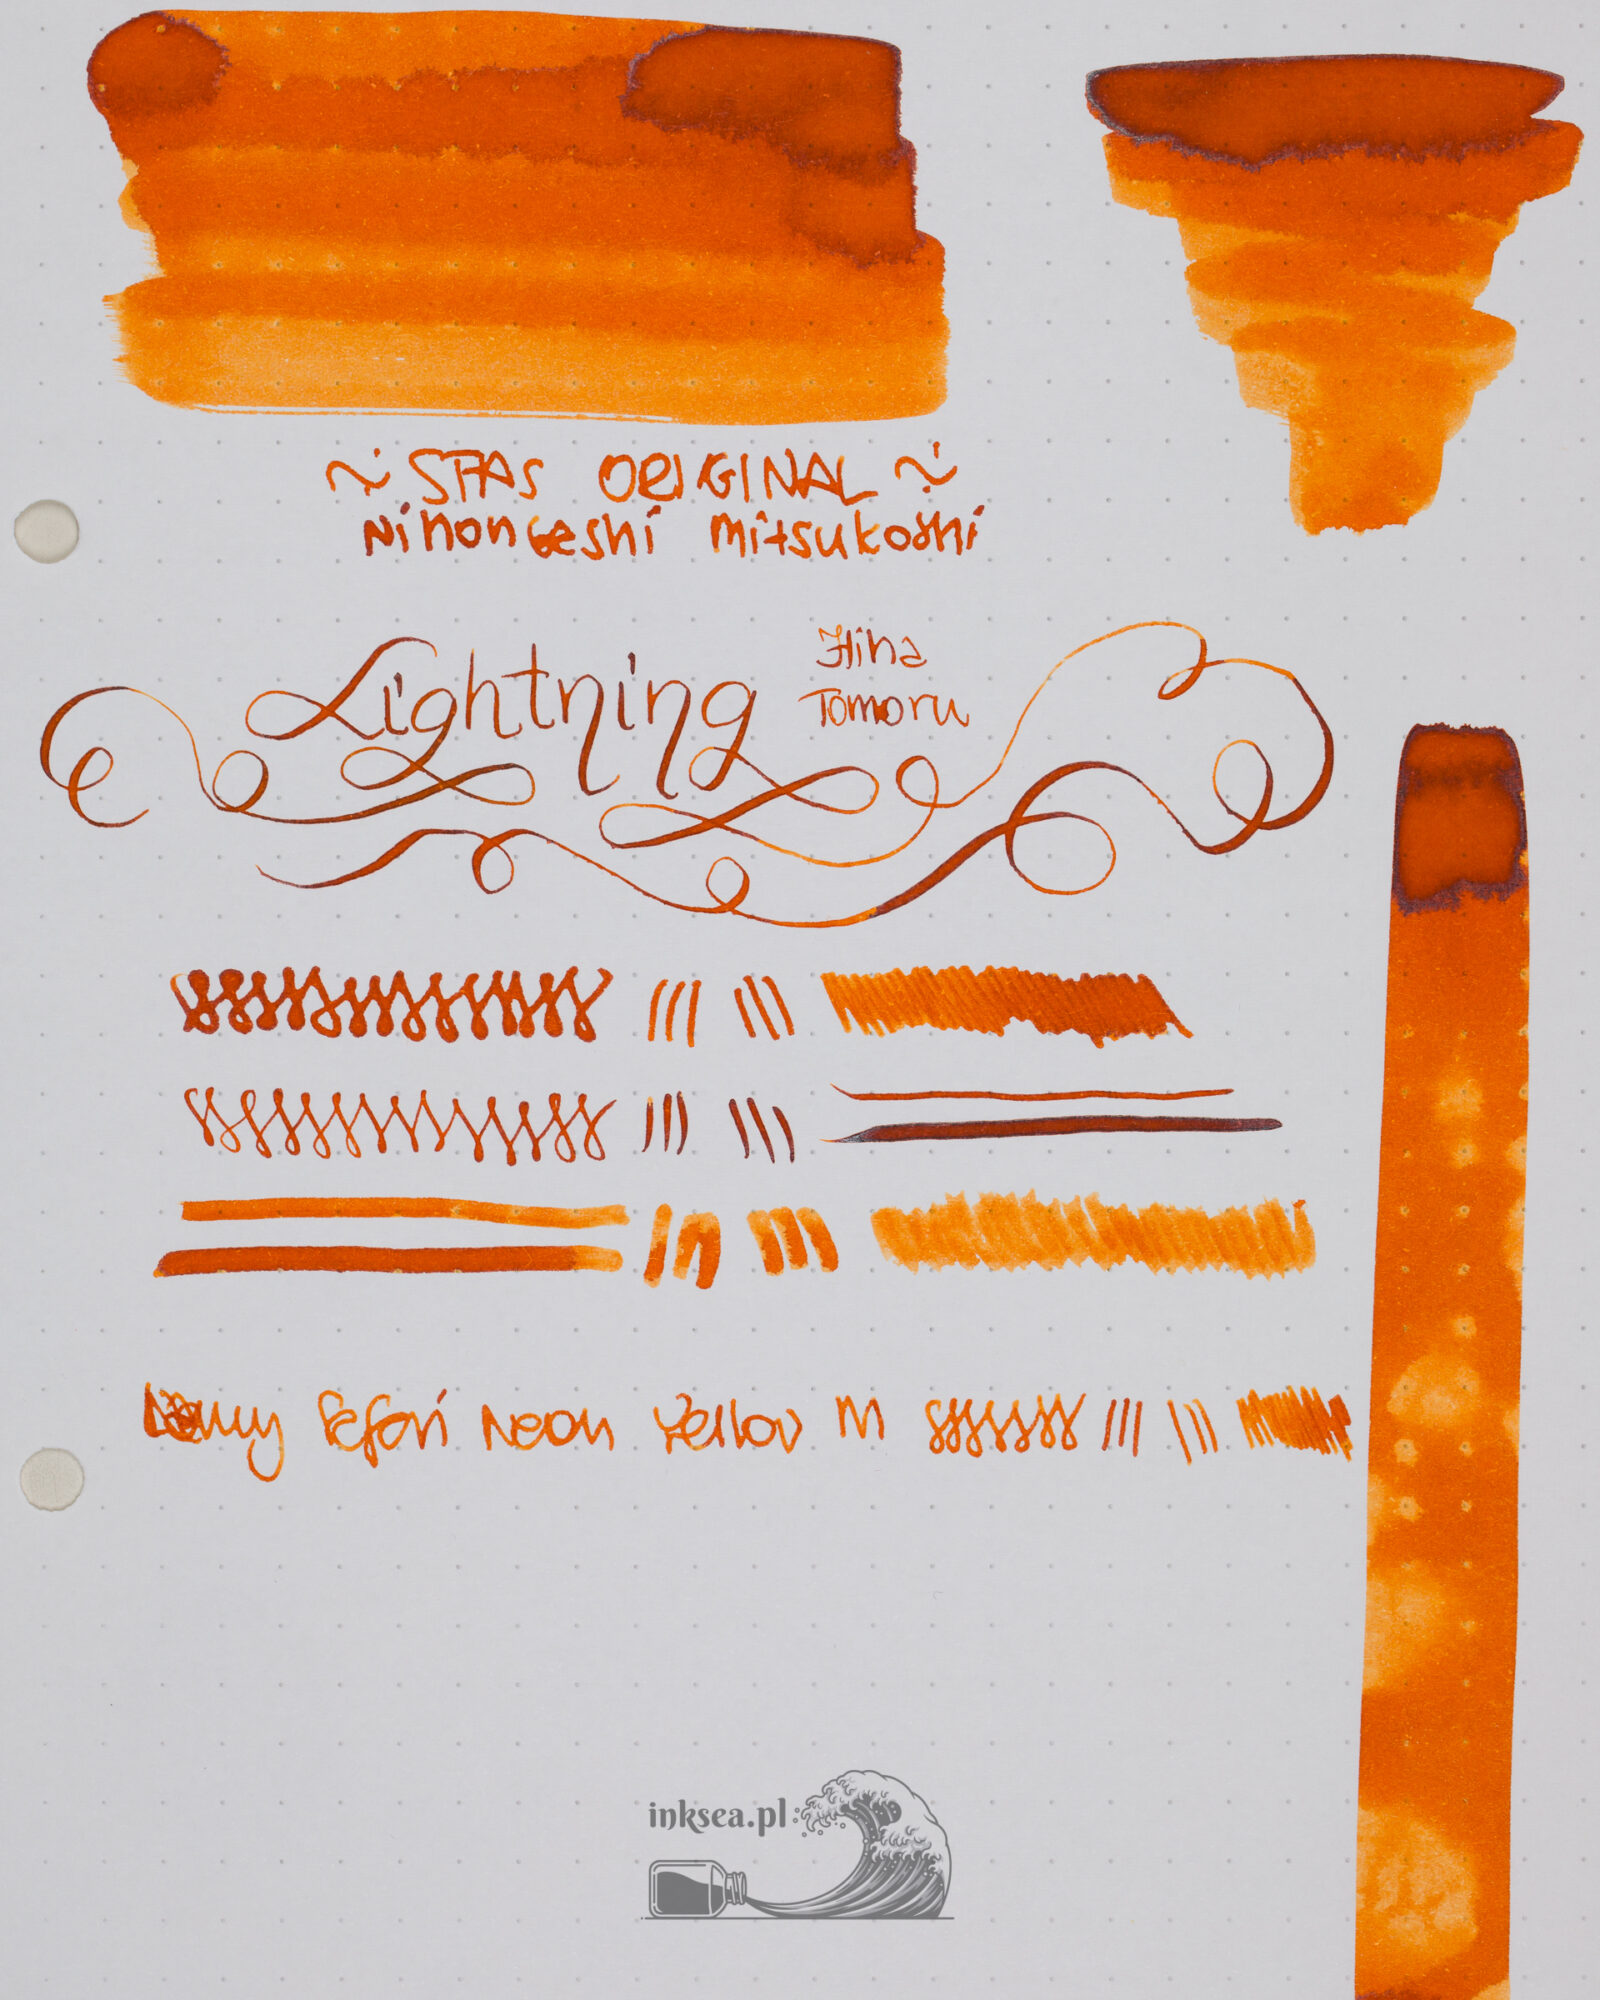 ~ STAS ORIGINAL ~
Nihonbeshi Mitsukoshi
Lightning
Hina
Tomoru
Lamy Safari Neon Yellow M
inksea.pl